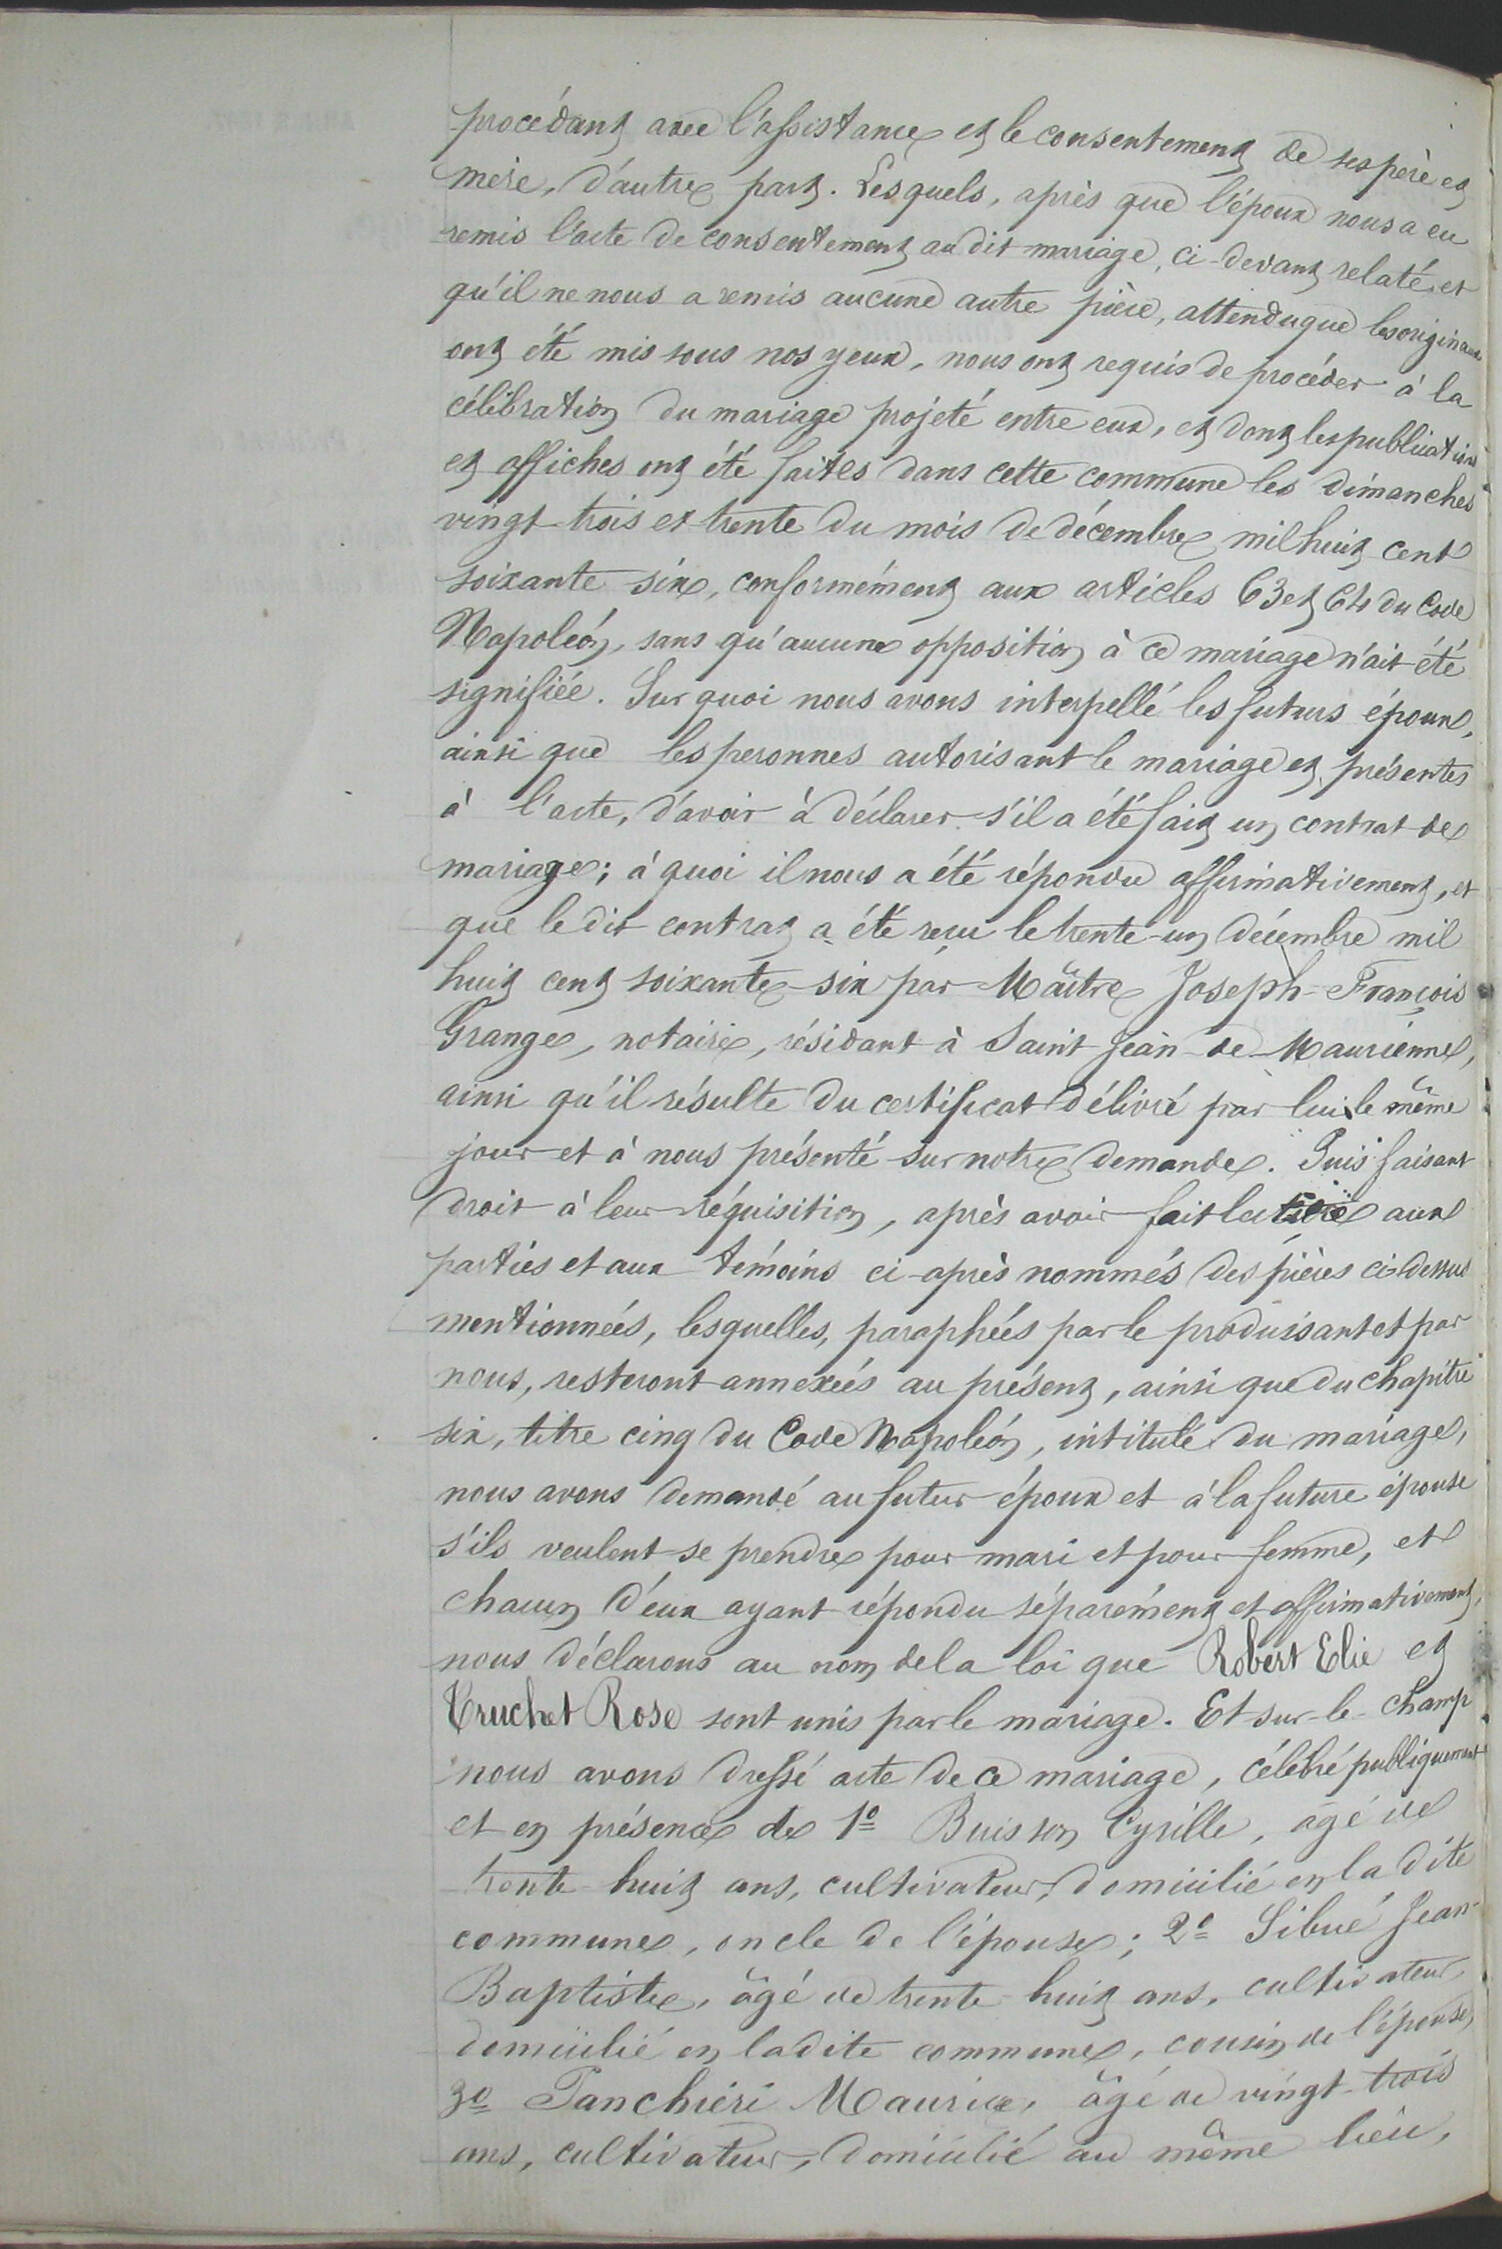 procédant avec l'assistance et le consentement de ses père et
mère, d'autre part. Lesquels, après que l'époux nous a eu
remis l'acte de consentement au dit mariage, ci-devant relaté, et
qu'il ne nous a remis aucune autre pièce, attendu que les originaux
ont été mis sous nos yeux, nous ont requis de procéder à la
célébration du mariage projeté entre eux, et dont les publications
et affiches ont été faites dans cette commune les dimanches
vingt-trois et trente du mois de décembre mil huit cent
soixante six, conformément aux articles 63 et 64 du Code
Napoléon, sans qu'aucune opposition à ce mariage n'ait été
signifiée. Sur quoi nous avons interpellé les futurs époux,
ainsi que les peronnes autorisant le mariage et présentes
à l'acte, d'avoir à déclarer s'il a été fait un contrat de
mariage; à quoi il nous a été répondu affirmativement, et
que le dit contrat a été reçu le trente-un décembre mil
huit cent soixante-six par Maître Joseph-François
Grange, notaire, résidant à Saint Jean-de-Maurienne,
ainsi qu'il résulte du certificat délivré par lui le même
jour et à nous présenté sur notre demande. Puis faisant
droit à leur réquisition, après avoir fait lecture aux
parties et aux témoins ci-après nommés des pièces ci-dessus
mentionnées, lesquelles, paraphées par le produisant et par
nous, resteront annexées au présent, ainsi que du chapitre
six, titre cinq du Code Napoléon, intitulé du mariage,
nous avons demandé au futur époux et à la future épouse
s'ils veulent se prendre pour mari et pour femme, et
chacun d'eux ayant répondu séparément et affirmativement,
nous déclarons au nom de la loi que Robert Elie et
Truchet Rose sont unis par le mariage. Et sur-le-champ
nous avons dressé acte de ce mariage, célébré publiquement
et en présence de 1º Buisson Cyrille, âgé de
trente-huit ans, cultivateur, domicilié en la dite
commune, oncle de l'épouse; 2º Sibué Jean-
Baptiste, âgé de trente-huit ans, cultivateur
domicilié en la dite commune, cousin de l'épouse,
3º Tanchiéri Maurice, âgé de vingt-trois
ans, cultivateur, domicilié au même lieu,